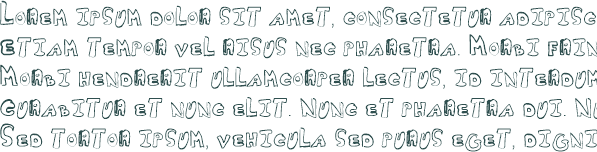 Lorem ipsum dolor sit amet, consectetur adipisc
etiam tempor vel risus nec pharetra. Morbi frin
Morbi hendrerit ullamcorper lectus, id interdum
curabitur et nunc elit. Nunc et pharetra dui. Nu
Sed tortor ipsum, vehicula sed purus eget, digni